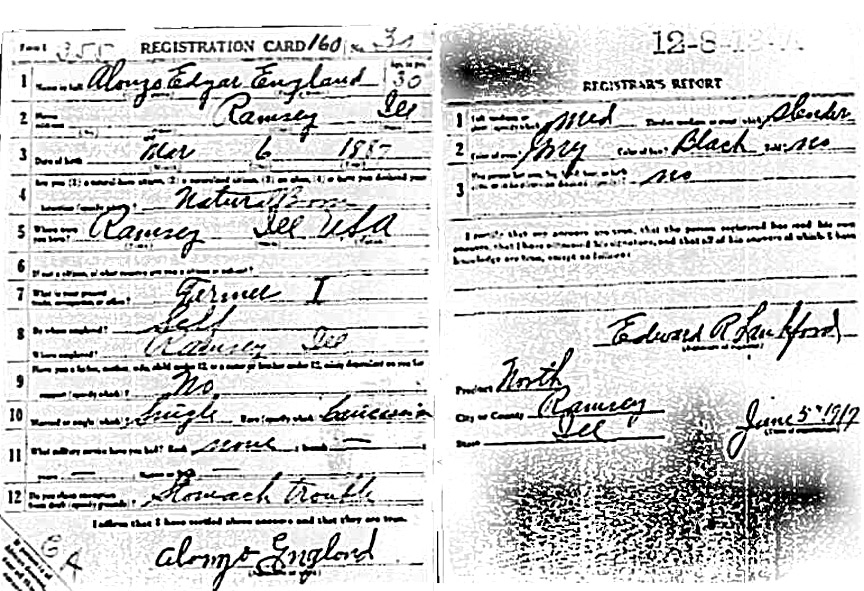 Form 1 REGISTRATION CARD 160 No.
1 Name in full Alonzo Edgar England Age, in yrs. 30
2 Home address Ramsey Ill
3 Date of birth Mar 6 1887
4 Are you (1) a natural-born citizen, (2) a naturalized citizen, (3) an alien, (4) or have you declared your
intention (specify which)? Natural Born
5 Where were you born? Ramsey Ill USA
6 If not a citizen, of what country are you a citizen or subject?
7 What is your present trade, occupation, or office? Farmer I
8 By whom employed? Self
Where employed? Ramsey Ill
9 Have you a father, mother, wife, child under 12, or a sister or brother under 12, solely dependent on you for
support (specify which)? No
10 Married or single (which)? Single Race (specify which)? Caucasian
11 What military service have you had? Rank none branch —
years — Nation or State —
12 Do you claim exemption from draft (specify grounds)? Stomach trouble
I affirm that I have verified above answers and that they are true.
Alonzo England
12-8-13-A
REGISTRAR'S REPORT
1 Med Slender
2 Color of eyes? Grey Color of hair? Black Bald? no
3 no
I certify that my answers are true, that the person registered has read his own
answers, that I have witnessed his signature, and that all of his answers of which I have
knowledge are true, except as follows:
Edward R Lankford
(Signature of registrar)
Precinct North
City or County Ramsey
State Ill
June 5" 1917
(Date of registration)